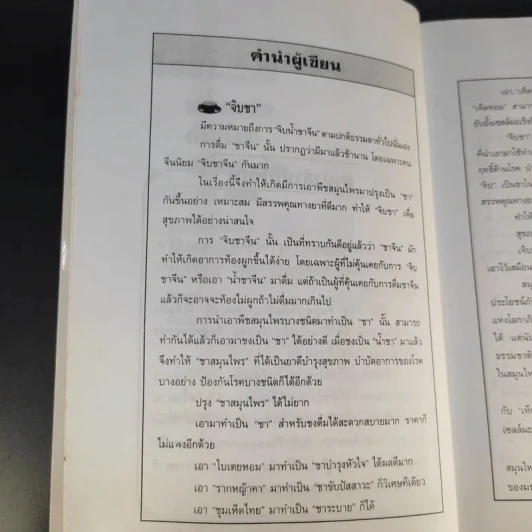 คำนำผู้เขียน
"จิบชา"
มีความหมายถึงการ "จิบน้ำชาจีน" ตามปกติธรรมดาทั่วไปนั่นเอง
การดื่ม "ชาจีน" นั้น ปรากฏว่ามีมาแล้วช้านาน โดยเฉพาะคน
จีนนิยม "จิบชาจีน" กันมาก
ในเรื่องนี้จึงทำให้เกิดมีการเอาพืชสมุนไพรมาปรุงเป็น "ชา"
กันขึ้นอย่าง เหมาะสม มีสรรพคุณทางยาที่ดีมาก ทำให้ "จิบชา" เพื่อ
สุขภาพได้อย่างน่าสนใจ
การ "จิบชาจีน" นั้น เป็นที่ทราบกันดีอยู่แล้วว่า "ชาจีน" มัก
ทำให้เกิดอาการท้องผูกขึ้นได้ง่าย โดยเฉพาะผู้ที่ไม่คุ้นเคยกับการ "จิบ
ชาจีน" หรือเอา "น้ำชาจีน" มาดื่ม แต่ถ้าเป็นผู้ที่คุ้นเคยกับการดื่มชาจีน
แล้วก็จะอาจจะท้องไม่ผูกถ้าไม่ดื่มมากเกินไป
การนำเอาพืชสมุนไพรบางชนิดมาทำเป็น "ชา" นั้น สามารถ
ทำกันได้แล้วก็เอามาชงเป็น "ชา" ได้อย่างดี เมื่อชงเป็น "น้ำชา" มาแล้ว
จึงทำให้ "ชาสมุนไพร" ที่ได้เป็นยาดีบำรุงสุขภาพ บำบัดอาการของโรค
บางอย่าง ป้องกันโรคบางชนิดก็ได้อีกด้วย
ปรุง "ชาสมุนไพร" ได้ไม่ยาก
เอามาทำเป็น "ชา" สำหรับชงดื่มได้สะดวกสบายมาก ราคาก็
ไม่แพงอีกด้วย
เอา "ใบเตยหอม" มาทำเป็น "ชาบำรุงหัวใจ" ได้ผลดีมาก
เอา "รากหญ้าคา" มาทำเป็น "ชาขับปัสสาวะ" ก็วิเศษทีเดียว
เอา "ชุมเห็ดไทย" มาทำเป็น "ชาระบาย" ก็ได้
เอา "เห็ด
"เห็ดหอม" สามาร
ยับยั้งเซลล์มะเร็งได้
"จิบชา"
ที่นำเอามาใช้ทำ
ฤทธิ์ต้านโรค
"จีบ" เป็นชาใน
สรรพคุณทางยา
ทำให้
สุขภา
เอาไว้เสมือน
สมุ
ประโยชน์ภั
แห่งโลกาภิ
ได้ แต่นับ
ธรรมชาติ
ในสมุนไพ
กับ "เห็
เซลล์มะ
สมุนไพ
ของม